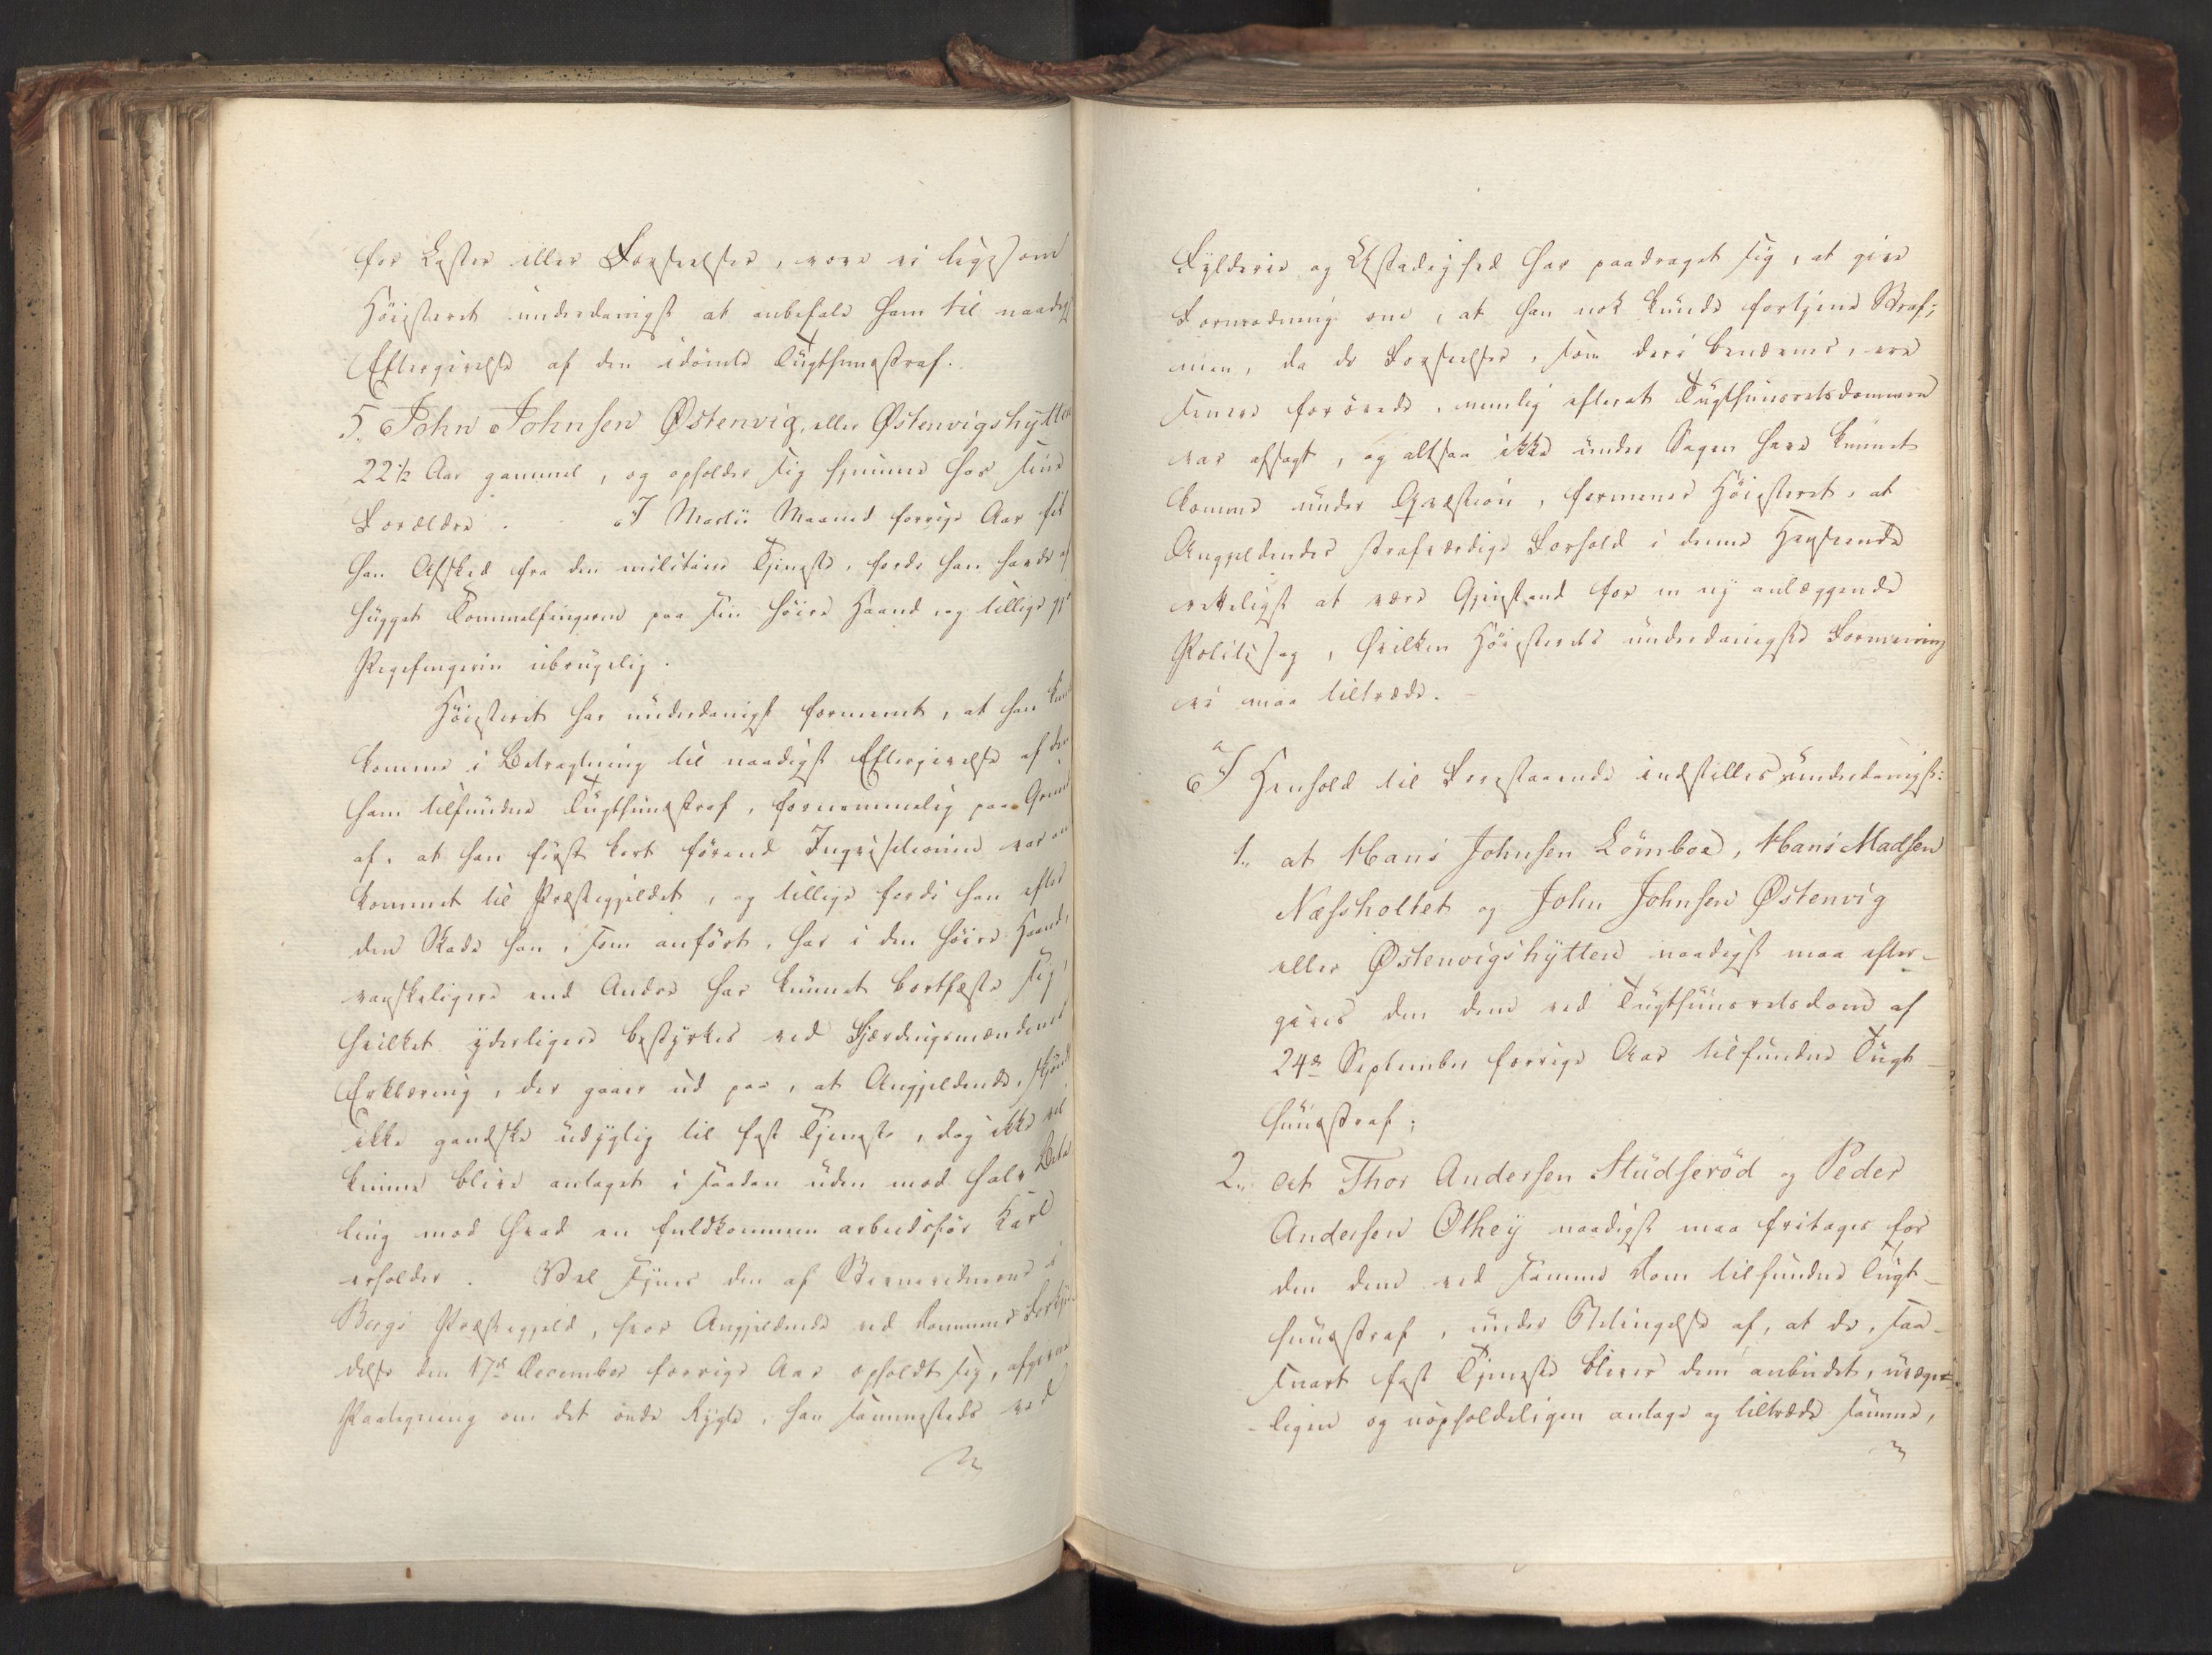 for Laster eller Forseelser, vove vi ligesom
Höiesteret underdanigst at anbefale ham til naadigst
Eftergivelse af den idömte Tugthuusstraf.
5. John Johnsen Østenvig, eller Østenvigshytten
22 1/2 Aar gammel, og opholder sig hjemme hos sine
Forældre. I Martii Maaned forrige Aar fik
han Afsked fra den militaire Tjeneste, fordi han havde af
hugget Tommelfingeren paa sin höire Haand, og tillige gj
Pegefingeren ubrugelig.
Höiesteret har underdanigst formeent, at han kun
komme i Betragtning til naadigst Eftergivelse af den
ham tilfundne Tugthuusstraf, fornemmelig paa Grund
af, at han först kort förend Inqvisitionen var an
kommet til Præstegjeldet, og tillige fordi han efter
den Skade han, som anfört, har i den höire Haand,
vanskeligere end Andre har kunnet bortfæste sig,
hvilket yderligere bestyrkes ved Fjerdingsmændenes
Erklæring, der gaaer ud paa, at Angjeldende, skjönt
ikke gandske udygtig til fast Tjeneste, dog ikke vil
kunne blive antaget i saadan uden mod halv Beta
ling mod hvad en fuldkommen arbeidsför Karl
erholder. Vel synes den af Skrivereieren i
Bergs Præstegjeld, hvor Angjeldende ved Dommens Forkyn
delse den 17de December forrige Aar opholdt sig, afgivne
Paategning om det onde Rygte, han sammesteds ved
Fylderie og Ustadighed har paadraget sig, at give
Formodning om, at han nok kunde fortjene Straf;
men, da de Forseelser, som deri benævnes, ere
senere forövede, nemlig efterat Tugthuusretsdommen
var afsagt, og altsaa ikke under Sagen have kunnet
komme under Qvæstion, formener Höiesteret, at
Angjeldendes strafværdige Forhold i denne Henseende
retteligst at være Gjenstand for en ny anlæggende
Politiesag, hvilken Höiesterets underdanigste Formening
vi maa tiltræde. –
I Henhold til Forestaaende indstilles underdanigst:
1., at Hans Johnsen Lömboe, Hans Madsen
Næssholtet og John Johnsen Østenvig
eller Østenvigshytten naadigst maa efter-
gives den dem ved Tugthuusretsdom af
24de September forrige Aar tilfundne Tugt-
huusstraf;
2., at Thor Andersen Studseröd og Peder
Andersen Ølhey naadigst maa fritages for
den dem ved samme Dom tilfundne Tugt-
huusstraf, under Betingelse af, at de, saa-
snart fast Tjeneste bliver dem anbudet, uvæger-
ligen og uopholdeligen antage og tiltræde samme,